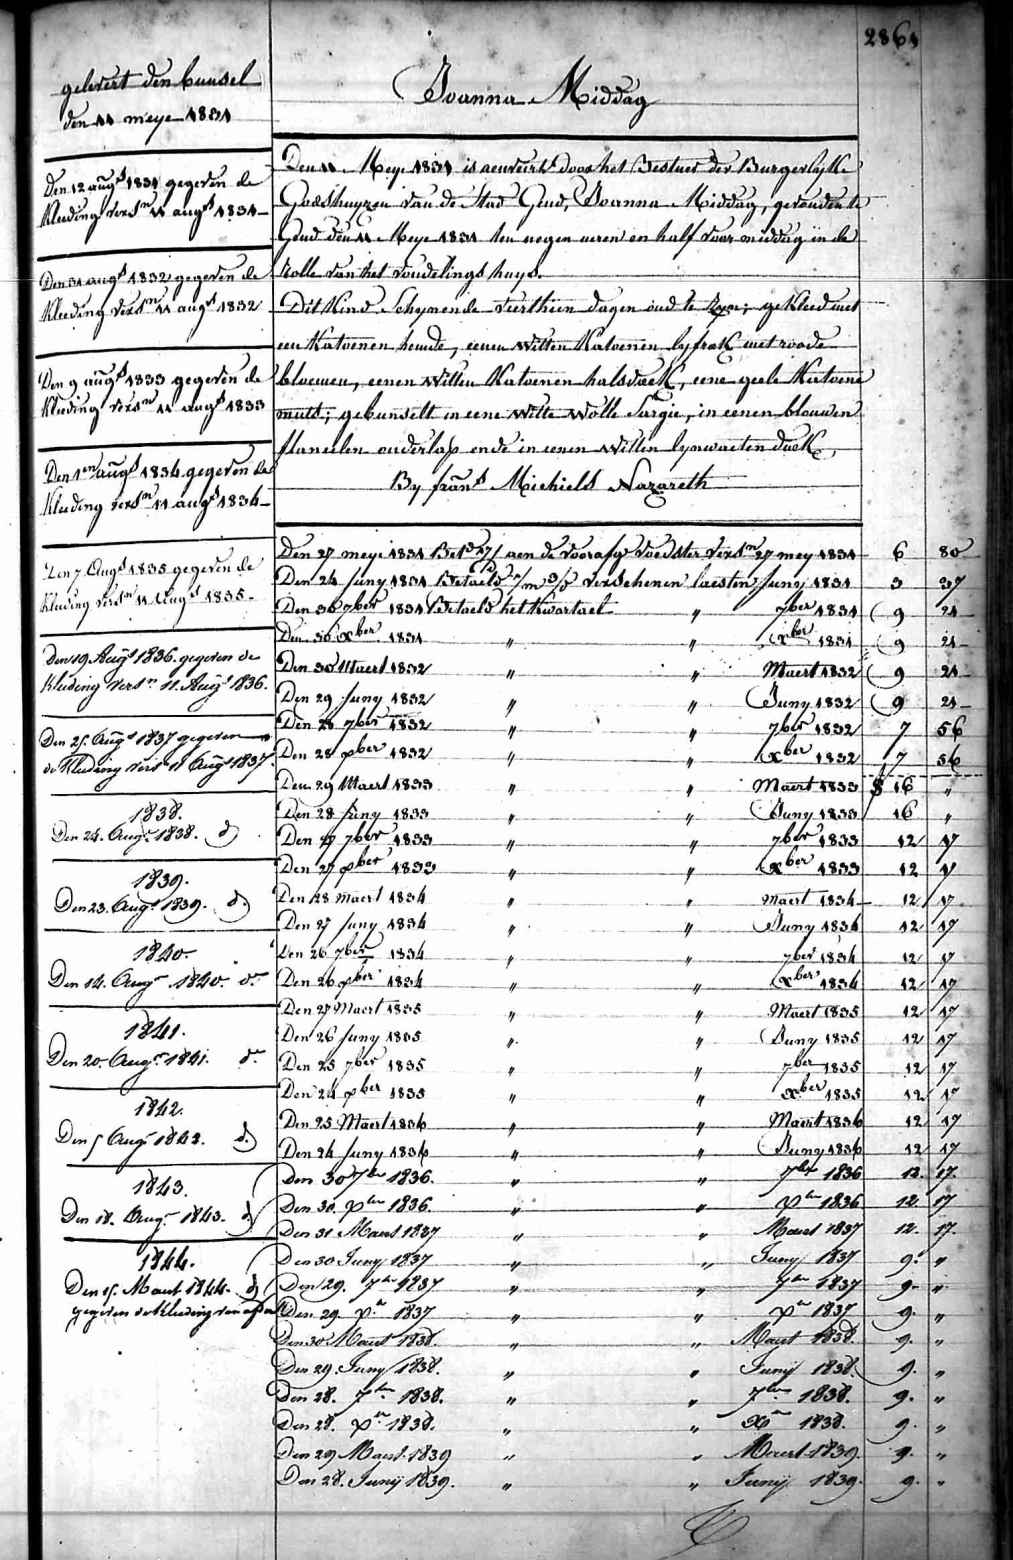 2864
Joanna Middag
gelevert den bunsel
den 11 meye 1831
Den 12 augs 1831 gegeven de
Kleeding versn 11 augs 1831
Den 31 augs 1832 gegeven de
Kleeding versn 11 augs 1832
Den 9 augs 1833 gegeven de
Kleeding versn 11 augs 1833
Den 1en augs 1834 gegeven de
Kleeding versn 11 augs 1834
Den 7 Augs 1835 gegeven de
Kleeding versn 11 Augs 1835
Den 19 Augs 1836 gegeven de
Kleeding versn 11 Augs 1836.
Den 25 Augs 1837 gegeven
de Kleeding versn 11 Augs 1837.
1838.
Den 24. Augs 1838. do
1839.
Den 23. Augs 1839. do
1840.
Den 14. Augs 1840. do
1841.
Den 20. Augs 1841. do
1842.
Den 5 Augs 1842. do
1843.
Den 18. Augs 1843. do
1844.
Den 15. Maert 1844. do
gegeven de Kleeding van
Den 11 Meye 1831 is aenveird door het Bestuer der Burgerlyke
Godshuyzen van de Stad Gend, Joanna Middag, gevonden te
Gend den 11 Meye 1831 ten negen uren en half voor middag in de
rolle van het vondelings huys.
Dit Kind Schynende veerthien dagen oud te zyn; gekleed met
een Katoenen hemde, eenen witten Katoenen lyfrok met roode
bloemen, eenen witten Katoenen halsdoek, eene geele Katoene
muts; gebunselt in eene witte wolle Sargie, in eenen blauwen
flanellen onderlap ende in eenen witten lynwaeten doek
By frans Michiels Nazareth
Den 27 mey 1831 aen de voorafge voedster versn 27 mey 1831 6 80
Den 24 Juny 1831 Betaeld verschenen laesten Juny 1831 3 37
Den 30 7ber 1831 Betaeld het Kwartael " 7ber 1831 9 21
Den 30 xber 1831 " " xber 1831 9 21
Den 30 Maert 1832 " " Maert 1832 9 21
Den 29 Juny 1832 " " Juny 1832 9 21
Den 28 7ber 1832 " " 7ber 1832 7 56
Den 28 xber 1832 " " xber 1832 7 56
Den 29 Maert 1833 " " Maert 1833 16 "
Den 28 Juny 1833 " " Juny 1833 16 "
Den 27 7ber 1833 " " 7ber 1833 12 17
Den 27 xber 1833 " " xber 1833 12 17
Den 28 Maert 1834 " " Maert 1834 12 17
Den 27 Juny 1834 " " Juny 1834 12 17
Den 26 7ber 1834 " " 7ber 1834 12 17
Den 26 xber 1834 " " xber 1834 12 17
Den 27 Maert 1835 " " Maert 1835 12 17
Den 26 Juny 1835 " " Juny 1835 12 17
Den 25 7ber 1835 " " 7ber 1835 12 17
Den 24 xber 1835 " " xber 1835 12 17
Den 25 Maert 1836 " " Maert 1836 12 17
Den 24 Juny 1836 " " Juny 1836 12 17
Den 30 7ber 1836. " " 7ber 1836 12. 17.
Den 30. xber 1836. " " xber 1836 12. 17
Den 31 Maert 1837 " " Maert 1837 12. 17.
Den 30 Juny 1837 " " Juny 1837 9. "
Den 29. 7ber 1837 " " 7ber 1837 9. "
Den 29. xer 1837 " " xer 1837 9. "
Den 30 Maert 1838. " " Maert 1838. 9. "
Den 29. Juny 1838. " " Juny 1838. 9. "
Den 28. 7ber 1838. " " 7ber 1838. 9. "
Den 28. xer 1838. " " xer 1838. 9. "
Den 29 Maert 1839 " " Maert 1839. 9. "
Den 28. Juny 1839. " " Juny 1839. 9. "